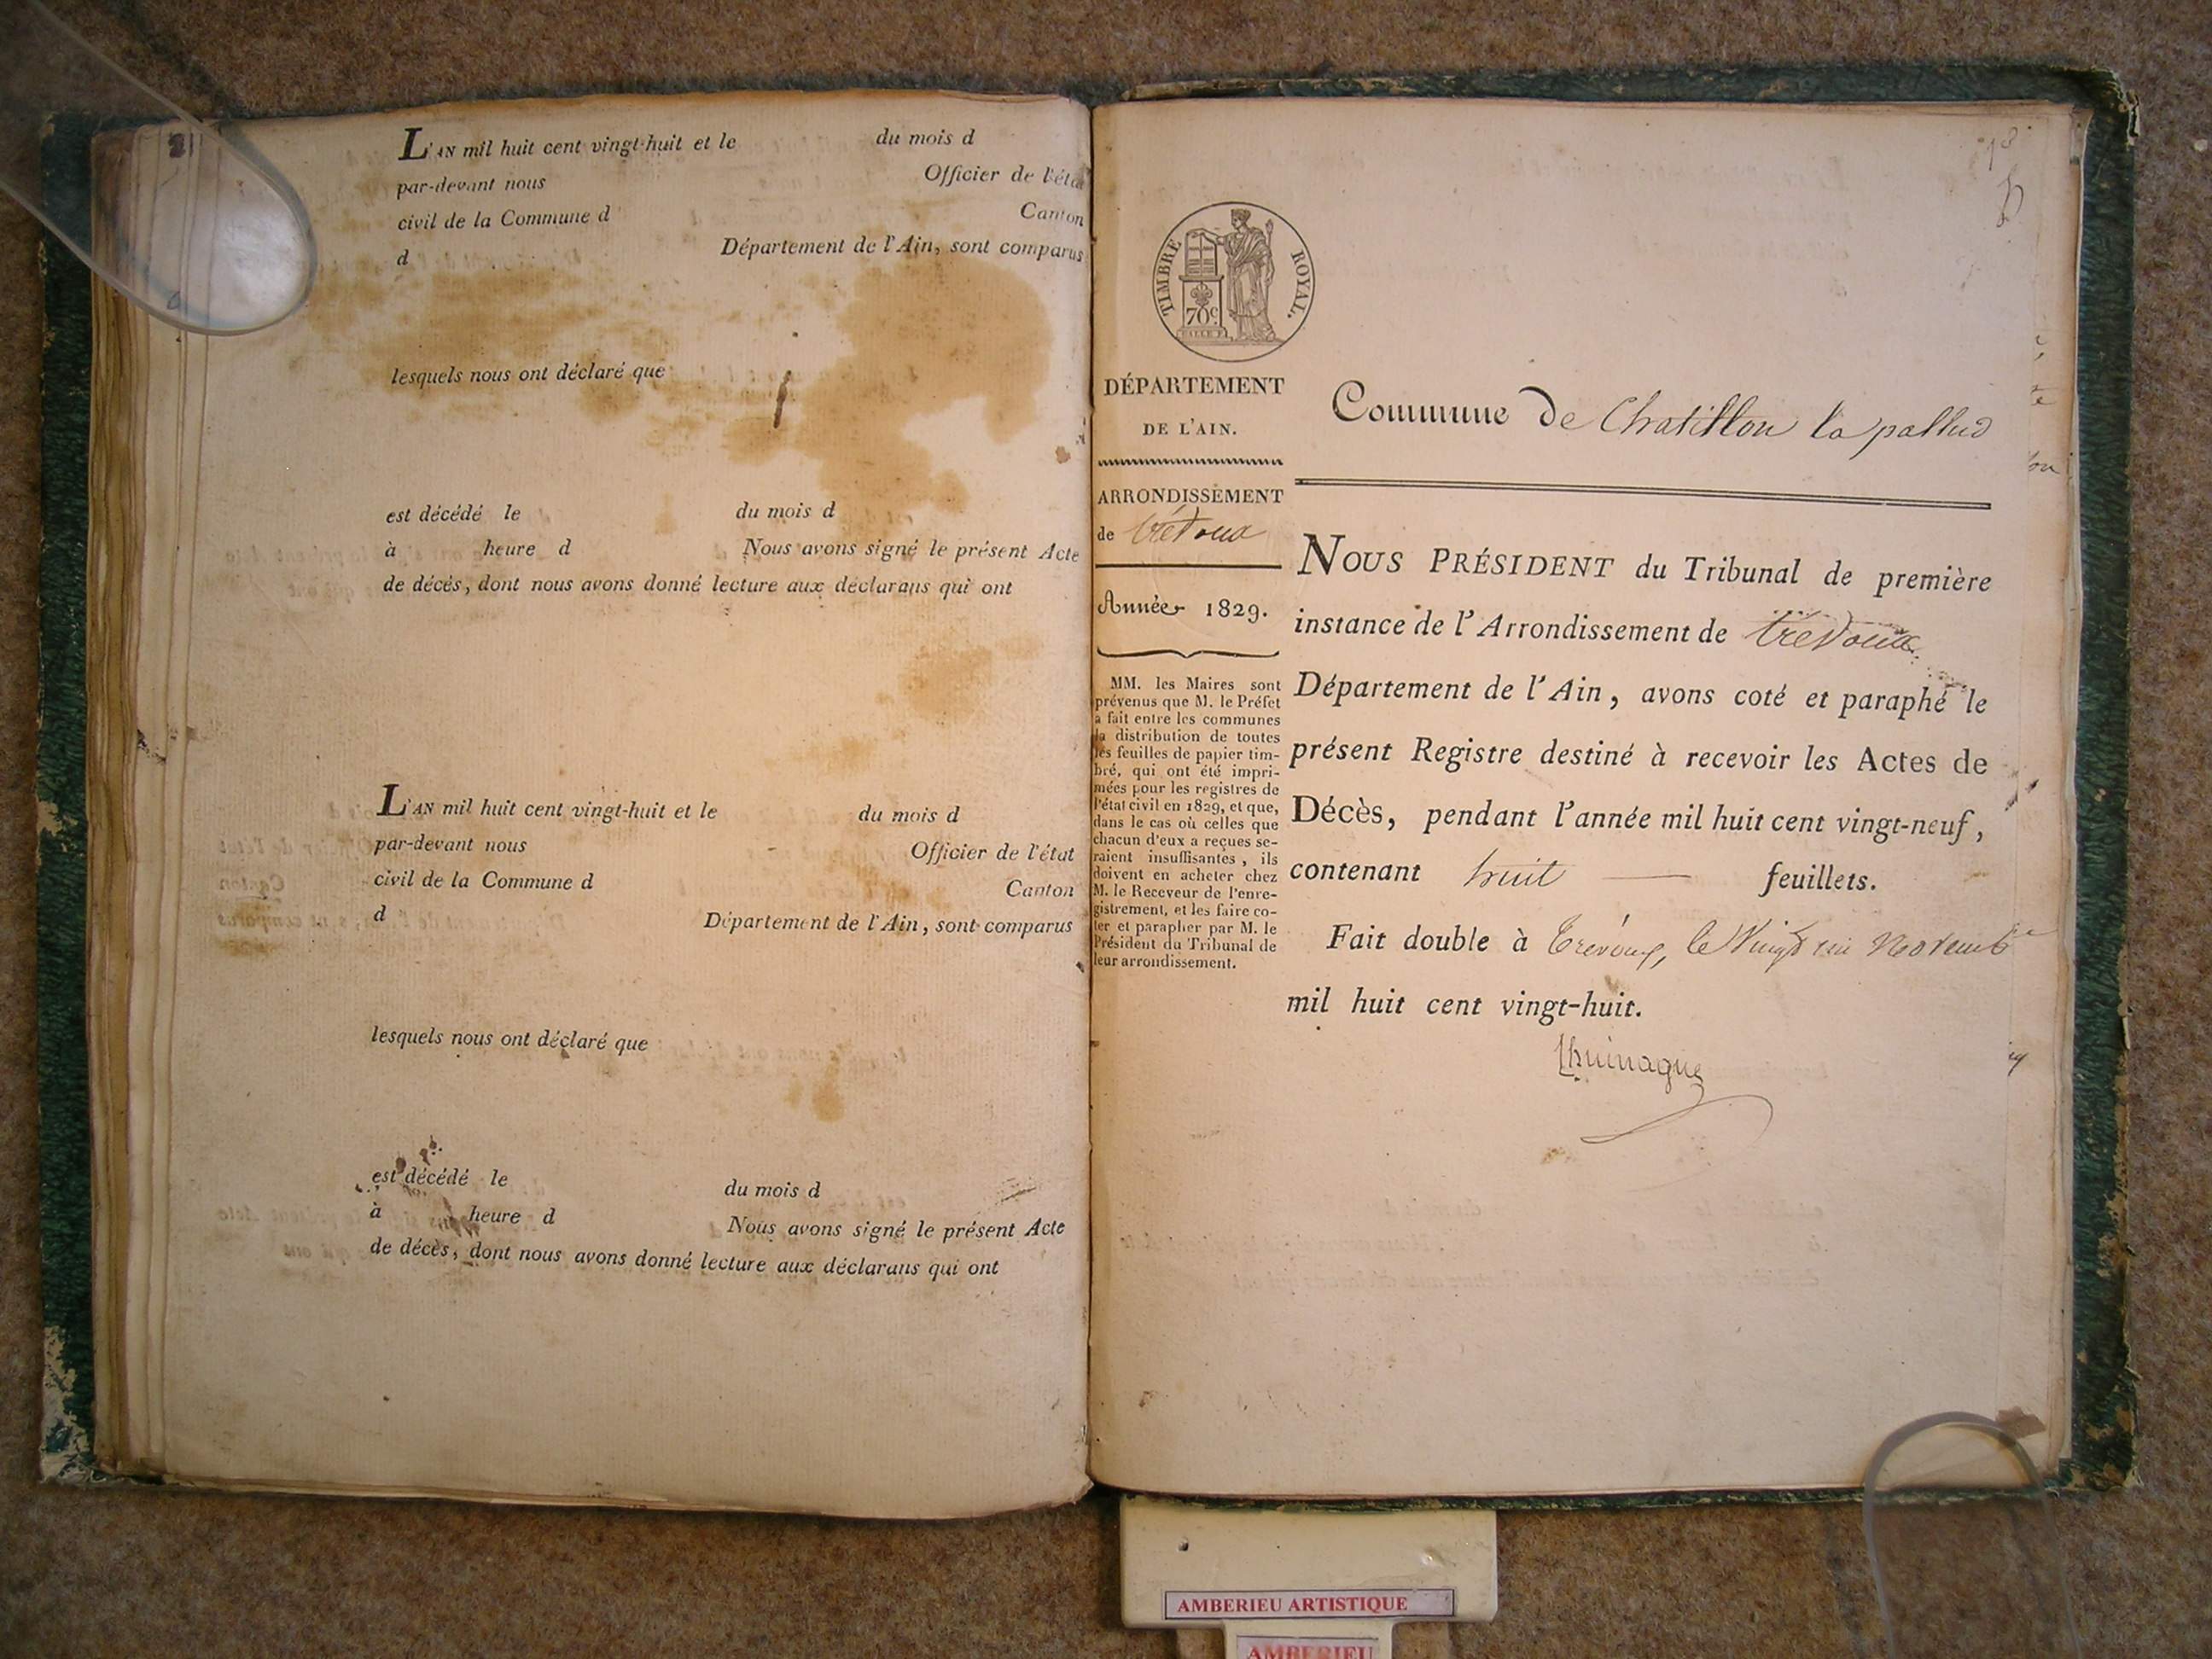 L'AN mil huit cent vingt-huit et le du mois d
par-devant nous Officier de l'état
civil de la Commune d Canton
d Département de l'Ain, sont comparus
lesquels nous ont déclaré que
est décédé le du mois d
à heure d Nous avons signé le présent Acte
de décés, dont nous avons donné lecture aux déclarans qui ont
L'AN mil huit cent vingt-huit et le du mois d
par-devant nous Officier de l'état
civil de la Commune d Canton
d Département de l'Ain, sont comparus
lesquels nous ont déclaré que
est décédé le du mois d
à heure d Nous avons signé le présent Acte
de décès, dont nous avons donné lecture aux déclarans qui ont
TIMBRE ROYAL.
70c
DÉPARTEMENT
DE L'AIN.
ARRONDISSEMENT
de trévoux
Année 1829.
MM. les Maires sont
prévenus que M. le Préfet
a fait entre les communes
la distribution de toutes
les feuilles de papier tim-
bré, qui ont été impri-
mées pour les registres de
l'état civil en 1829, et que,
dans le cas où celles que
chacun d'eux a reçues se-
raient insuffisantes, ils
doivent en acheter chez
M. le Receveur de l'enre-
gistrement, et les faire co-
ter et parapher par M. le
Président du Tribunal de
leur arrondissement.
Commune de Chatillon la pallud
NOUS PRÉSIDENT du Tribunal de première
instance de l'Arrondissement de trévoux
Département de l'Ain, avons coté et paraphé le
présent Registre destiné à recevoir les Actes de
Décès, pendant l'année mil huit cent vingt-neuf,
contenant huit feuillets.
Fait double à Trévoux, le Vingt un Novembre
mil huit cent vingt-huit.
AMBERIEU ARTISTIQUE
AMBERIEU